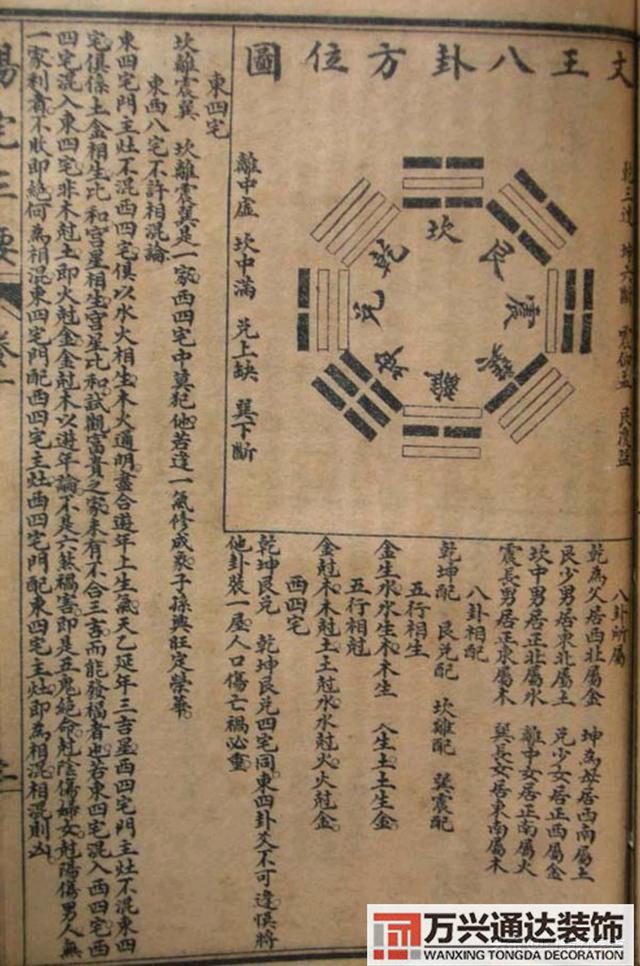 文王八卦方位圖
乾三連 坤六斷 震仰盂 艮覆盌
坎
艮
震
巽
離
坤
兌
乾
離中虛 坎中滿 兌上缺 巽下斷
八卦所屬
乾為父居西北屬金 坤為母居西南屬土
艮少男居東北屬土 兌少女居正西屬金
坎中男居正北屬水 離中女居正南屬火
震長男居正東屬木 巽長女居東南屬木
八卦相配
乾坤配 艮兌配 坎離配 巽震配
五行相生
金生水水生木木生 火生土土生金
五行相尅
金尅木木尅土土尅水水尅火火尅金
西四宅
乾坤艮兌 乾坤艮兌四宅同東四卦爻不可逢悞將
他卦裝一屋人口傷亡禍必重
東四宅
坎離震巽 坎離震巽是一家西四宅中莫犯他若逢一氣修成象子孫興旺定榮華
東西八宅不許相混論
東四宅門主灶不混西四宅俱以水火相生木火通明盡合遊年上生氣天乙延年三吉星西四宅門主灶不混東四
宅俱係土金相生比和宮星相生宮星比和試觀富貴之家未有不合三吉而能發福者也若東四宅混入西四宅西
四宅混入東四宅非木尅土即火尅金金尅木以遊年論不是六煞禍害即是五鬼絕命尅陰傷婦女尅陽傷男人無
一家利者不敗即絕何為相混東四宅門配西四宅主灶西四宅門配東四宅主灶即為相混相混則凶
陽宅三要 卷一
万兴通达装饰
WANXING TONGDA DECORATION